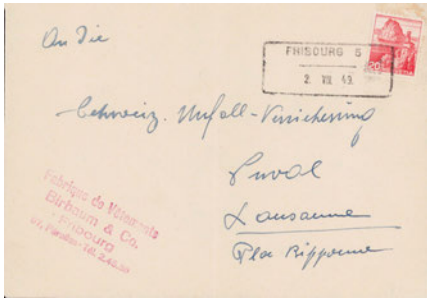 An die
FRIBOURG 5
2. VII. 49.
20
Schweiz. Unfall-Versicherung
Suval
Lausanne
Pla Ripponne
Fabrique de Vêtements
Birbaum & Co.
Fribourg
Tél. 2.